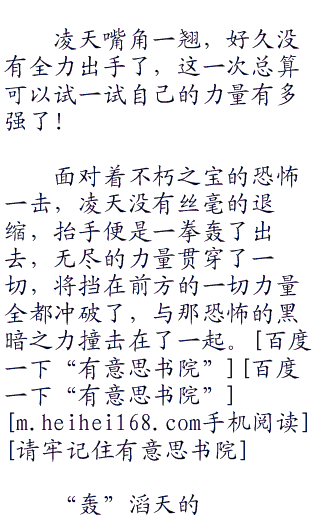 凌天嘴角一翘，好久没
有全力出手了，这一次总算
可以试一试自己的力量有多
强了！
面对着不朽之宝的恐怖
一击，凌天没有丝毫的退
缩，抬手便是一拳轰了出
去，无尽的力量贯穿了一
切，将挡在前方的一切力量
全都冲破了，与那恐怖的黑
暗之力撞击在了一起。[百度
一下“有意思书院”][百度
一下“有意思书院”]
[m.heihei168.com手机阅读]
[请牢记住有意思书院]
“轰”滔天的